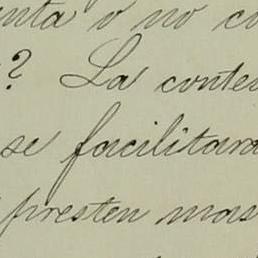 nta o no co
? La conte
se facilitara
presten mas